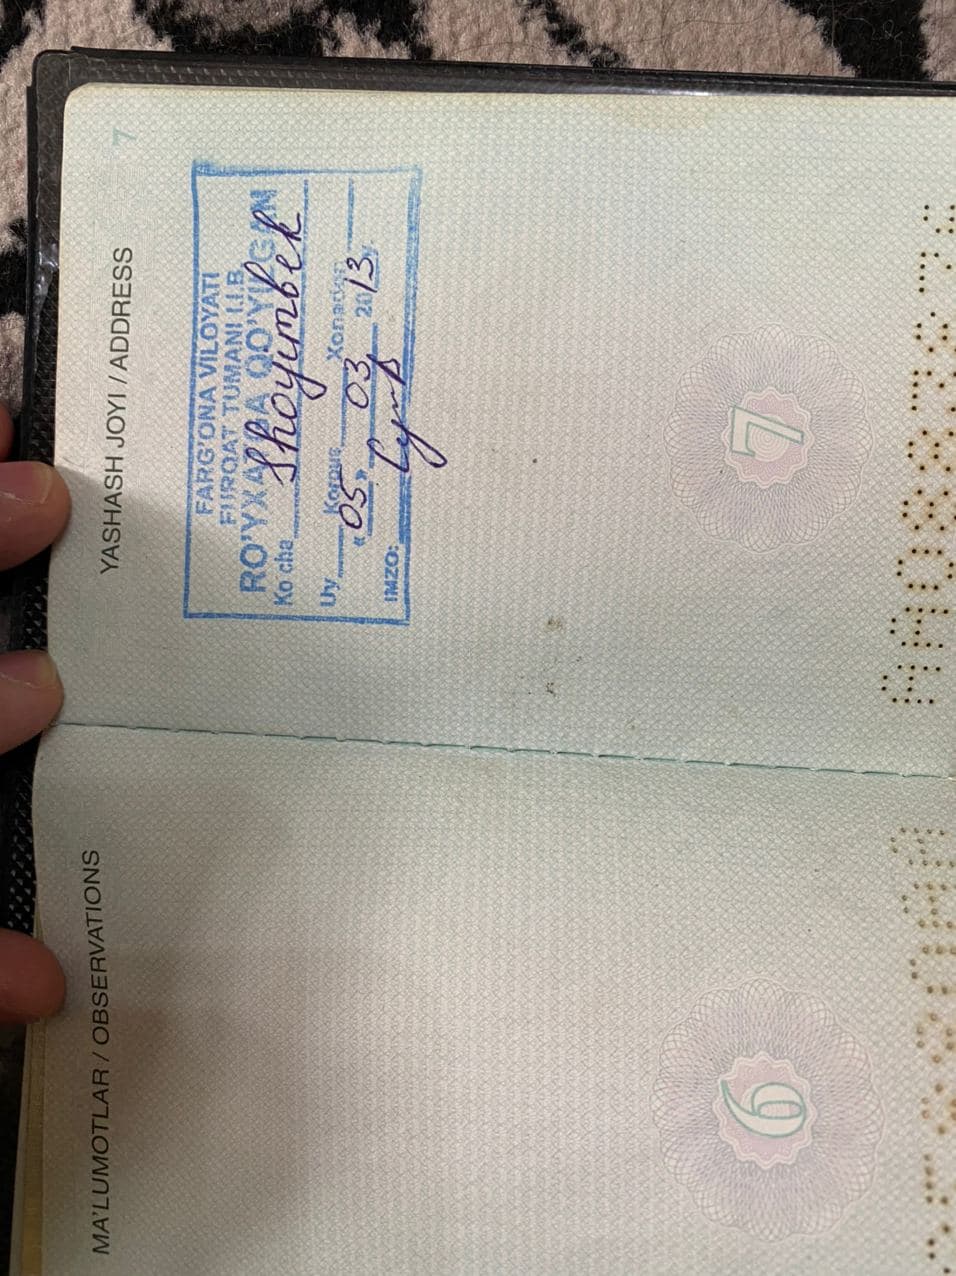 MA'LUMOTLAR / OBSERVATIONS
6
YASHASH JOYI / ADDRESS
7
FARG'ONA VILOYATI
FURQAT TUMANI I.I.B.
RO'YXATGA QO'YILGAN
Ko cha Shoyimbek
Uy Korpus Xonadon
«05» 03 2013 y.
IMZO:
7